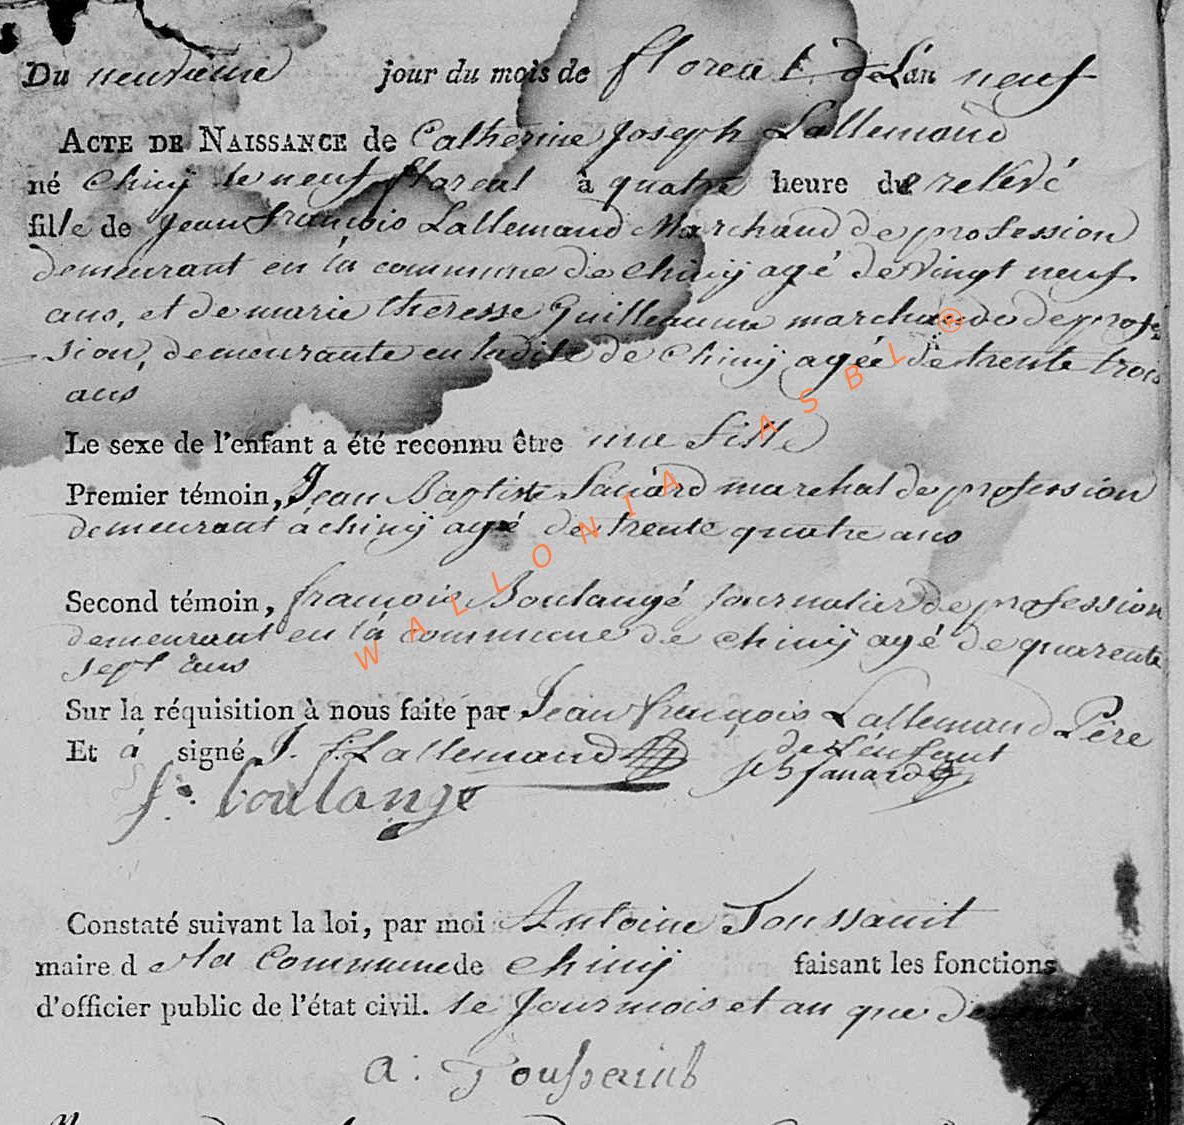 Du neuvieme jour du mois de floreal de Lan neuf
ACTE DE NAISSANCE de Catherine Joseph Lallemand
né Chiny le neuf floreal à quatre heure du relevé
fille de Jean francois Lallemand Marchand de profession
demeurant en la commune de Chiny agé de vingt neuf
ans, et de marie theresse Guilleaume marchande de profes
sion, demeurante en ladite de Chiny agée de trente trois
ans
Le sexe de l'enfant a été reconnu être une fille
Premier témoin, Jean Baptiste marchal de profession
demeurant à chiny agé de trente quatre ans
Second témoin, francois Boulangé Journalier de profession
demeurant en la commune de chiny agé de quarente
sept ans
Sur la réquisition à nous faite par Jean françois Lallemand Père
de L'enfant
Et à signé J. f Lallemand
f. boulange
Constaté suivant la loi, par moi Antoine Toussaint
maire d ela Commune de chiny faisant les fonctions
d'officier public de l'état civil. le Jour mois et an que
a: Toussaint
WALLONIA ASBL ®